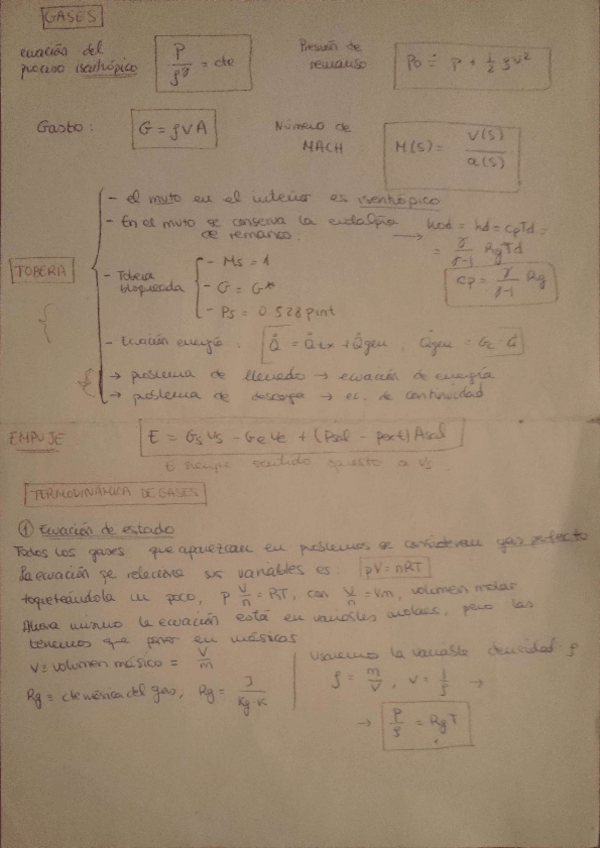 GASES
ecuación del proceso isentrópico P/ρ^γ = cte
Presión de remanso P0 ≐ P + 1/2 ρv²
Gasto: G = ρVA
Número de MACH: M(S) = V(S)/a(S)
TOBERA
- el mvto en el interior es isentrópico
- En el mvto se conserva la entalpía de remanso: → hod = hd = cpTd =
= γ/(γ-1) Rg Td
cp = γ/(γ-1) Rg
- Tobera bloqueada
- Ms = 1
- G = G*
- Ps = 0.528 pint
- Ecuación energía: Q̇ = Q̇tx + Q̇gen, Q̇gen =
→ problema de llenado → ecuación de energía
→ problema de descarga → ec. de continuidad
EMPUJE
E = Gs vs - Ge ve + (Psal - pext) Asal
E siempre sentido opuesto a vs
TERMODINÁMICA DE GASES
① Ecuación de estado
Todos los gases que aparezcan en problemas se consideran gas perfecto
La ecuación qe relaciona sus variables es: pV = nRT
toqueteándola un poco, p V/n = RT, con V/n = Vm, volumen molar
Ahora mismo la ecuación está en variables molares, pero las
tenemos que poner en másicas
v ≡ volumen másico = V/m
Rg ≡ cte másica del gas; Rg = J/(kg·K)
Usaremos la variable densidad ρ
ρ = m/V, v = 1/ρ →
→ P/ρ = RgT